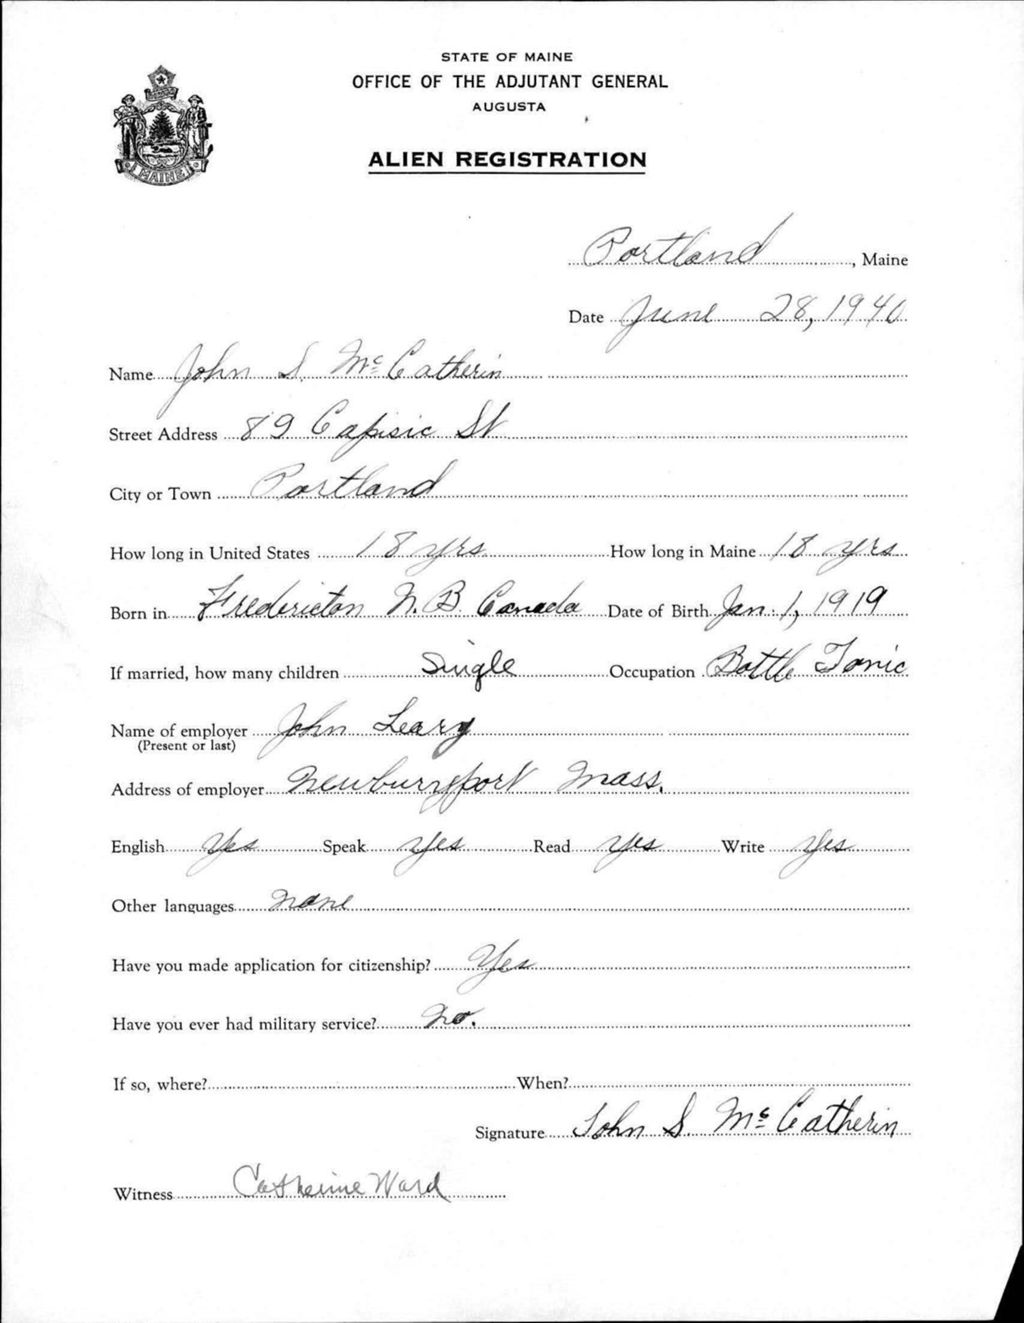 STATE OF MAINE
OFFICE OF THE ADJUTANT GENERAL
AUGUSTA
ALIEN REGISTRATION
MAINE
Portland, Maine
Date June 28, 1940
Name John S. McCatherin
Street Address 89 Capisic St
City or Town Portland
How long in United States 18 yrs How long in Maine 18 yrs
Born in Fredericton N.B. Canada Date of Birth Jan. 1, 1919
If married, how many children Single Occupation Bottle Tonic
Name of employer John Leary
(Present or last)
Address of employer Newburyport Mass.
English Yes Speak Yes Read Yes Write Yes
Other languages None
Have you made application for citizenship? Yes
Have you ever had military service? No.
If so, where? When?
Signature John S. McCatherin
Witness Catherine Ward